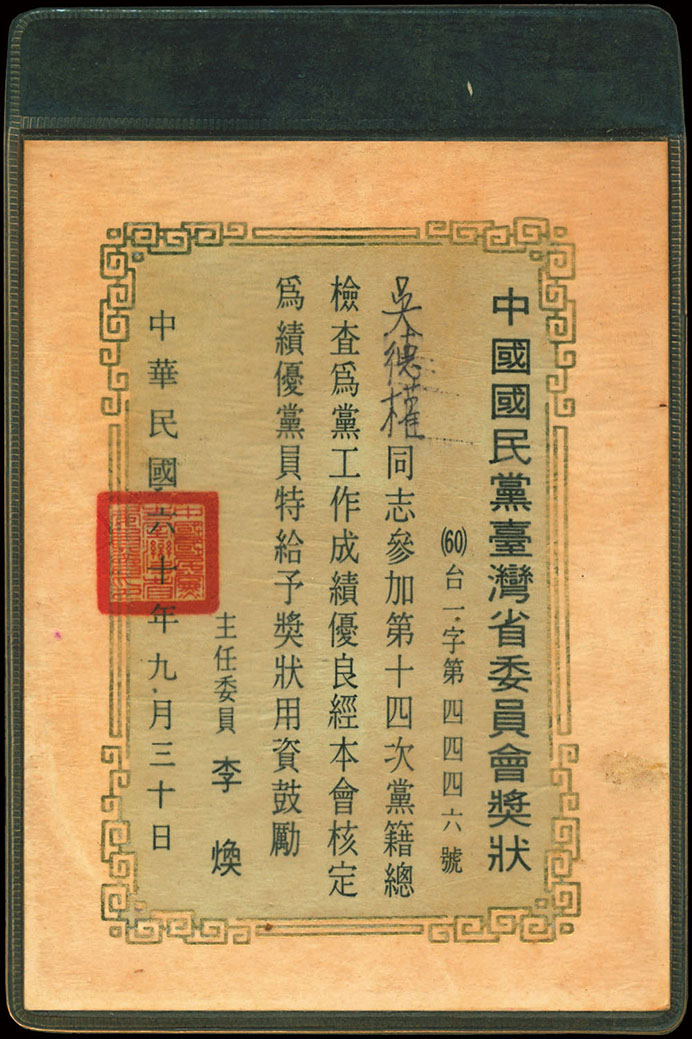 中國國民黨臺灣省委員會獎狀
(60)台一字第四四四六號
吳德權同志參加第十四次黨籍總
檢查爲黨工作成績優良經本會核定
爲績優黨員特給予獎狀用資鼓勵
主任委員 李煥
中華民國六十年九月三十日